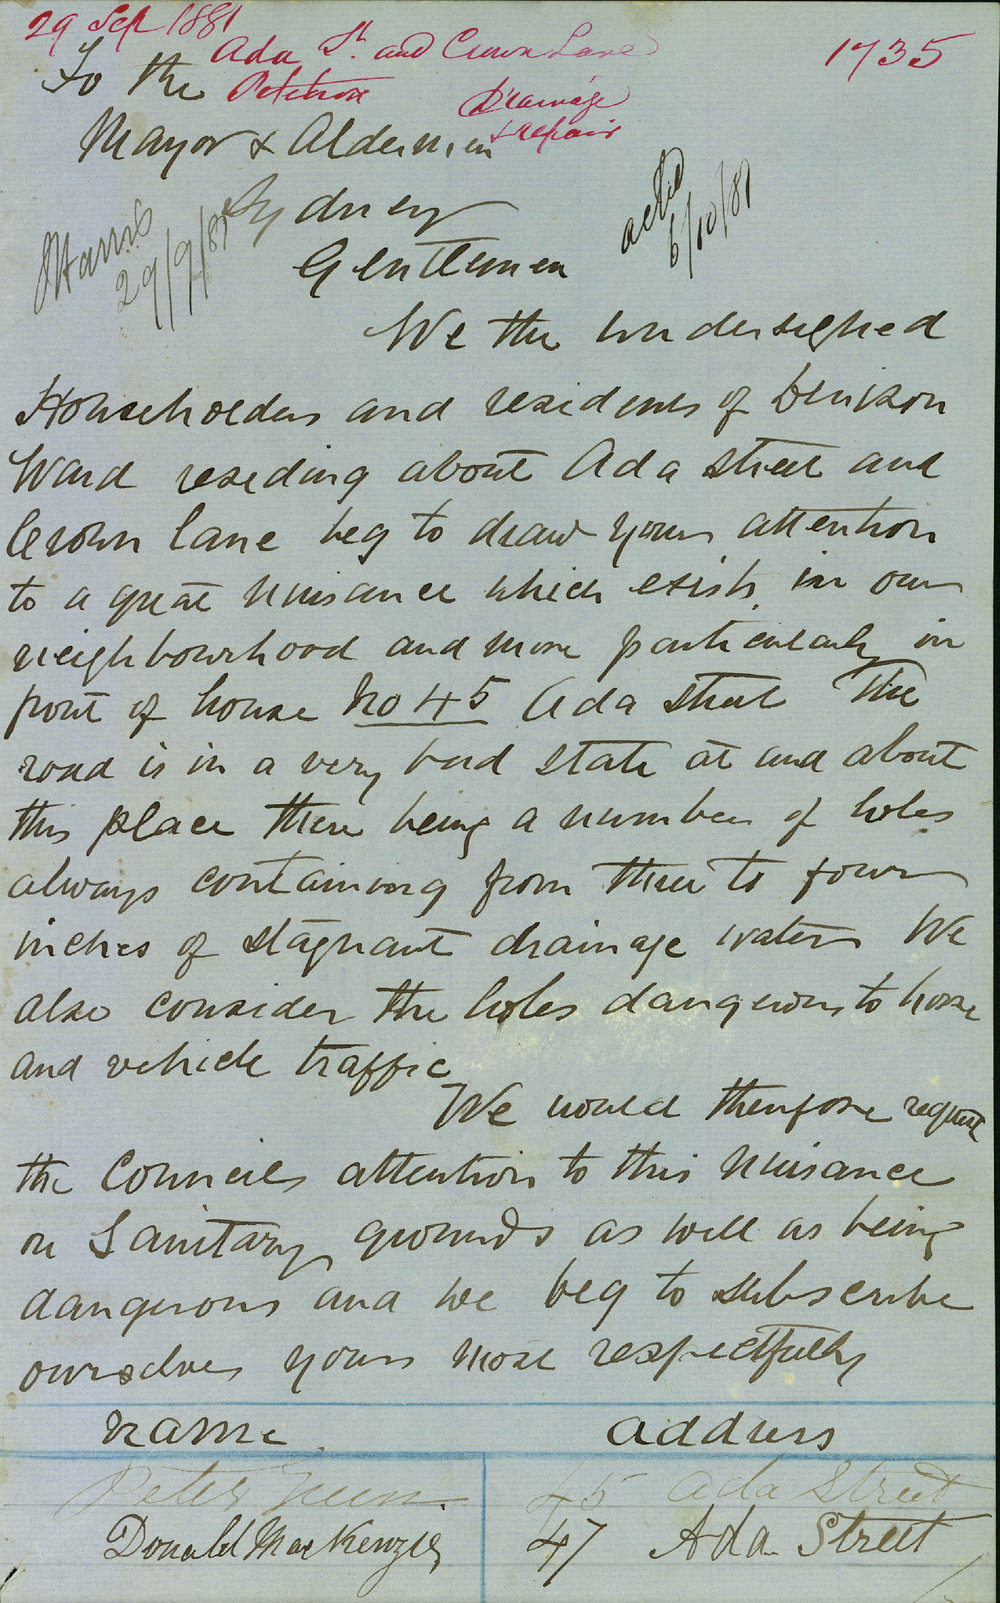 29 Sep 1881
Ada St. and Crown Lane
1735
Petition
Drainage
& repair
To the
Mayor & Aldermen
Sydney
29/9/81
6/10/81
Gentlemen
We the undersigned
Householders and residents of Denison
Ward reseding about Ada street and
Crown lane beg to draw your attention
to a great nuisance which exists in our
neighbourhood and more particularly in
front of house No 45 Ada street The
road is in a very bad state at and about
this place there being a number of holes
always containing from three to four
inches of stagnant drainage water We
also consider the holes dangerous to horse
and vehicle traffic
We would therefore request
the Councils attention to this nuisance
on Sanitary grounds as well as being
dangerous and we beg to subscribe
ourselves yours most respectfully
name address
Peter 45 Ada Street
Donald MacKenzie 47 Ada Street